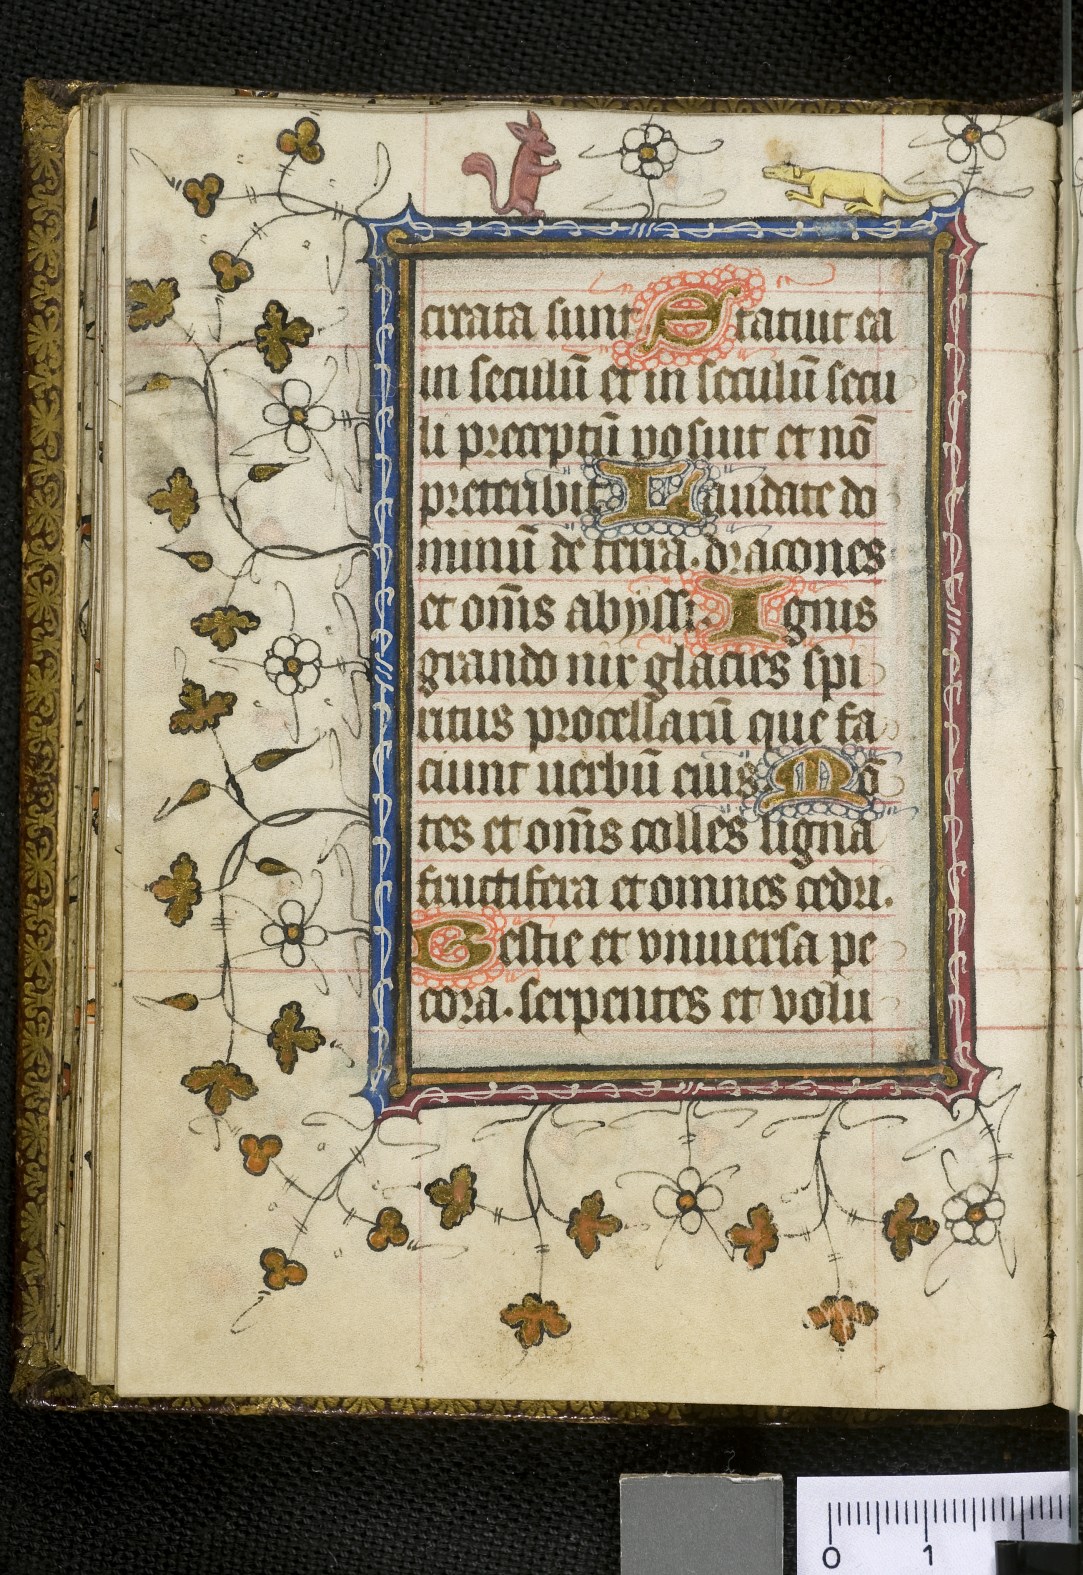 creata sunt Statuit ea
in seculū et in seculū secu
li preceptū posuit et nō
preteribit Laudate do
minū de terra. dracones
et om̄s abyssi. Ignis
grando nix glacies spi
ritus procellarū que fa
ciunt uerbū eius Mō
tes et om̄s colles ligna
fructifera et omnes cedri.
Bestie et vniuersa pe
cora. serpentes et volu
0 1